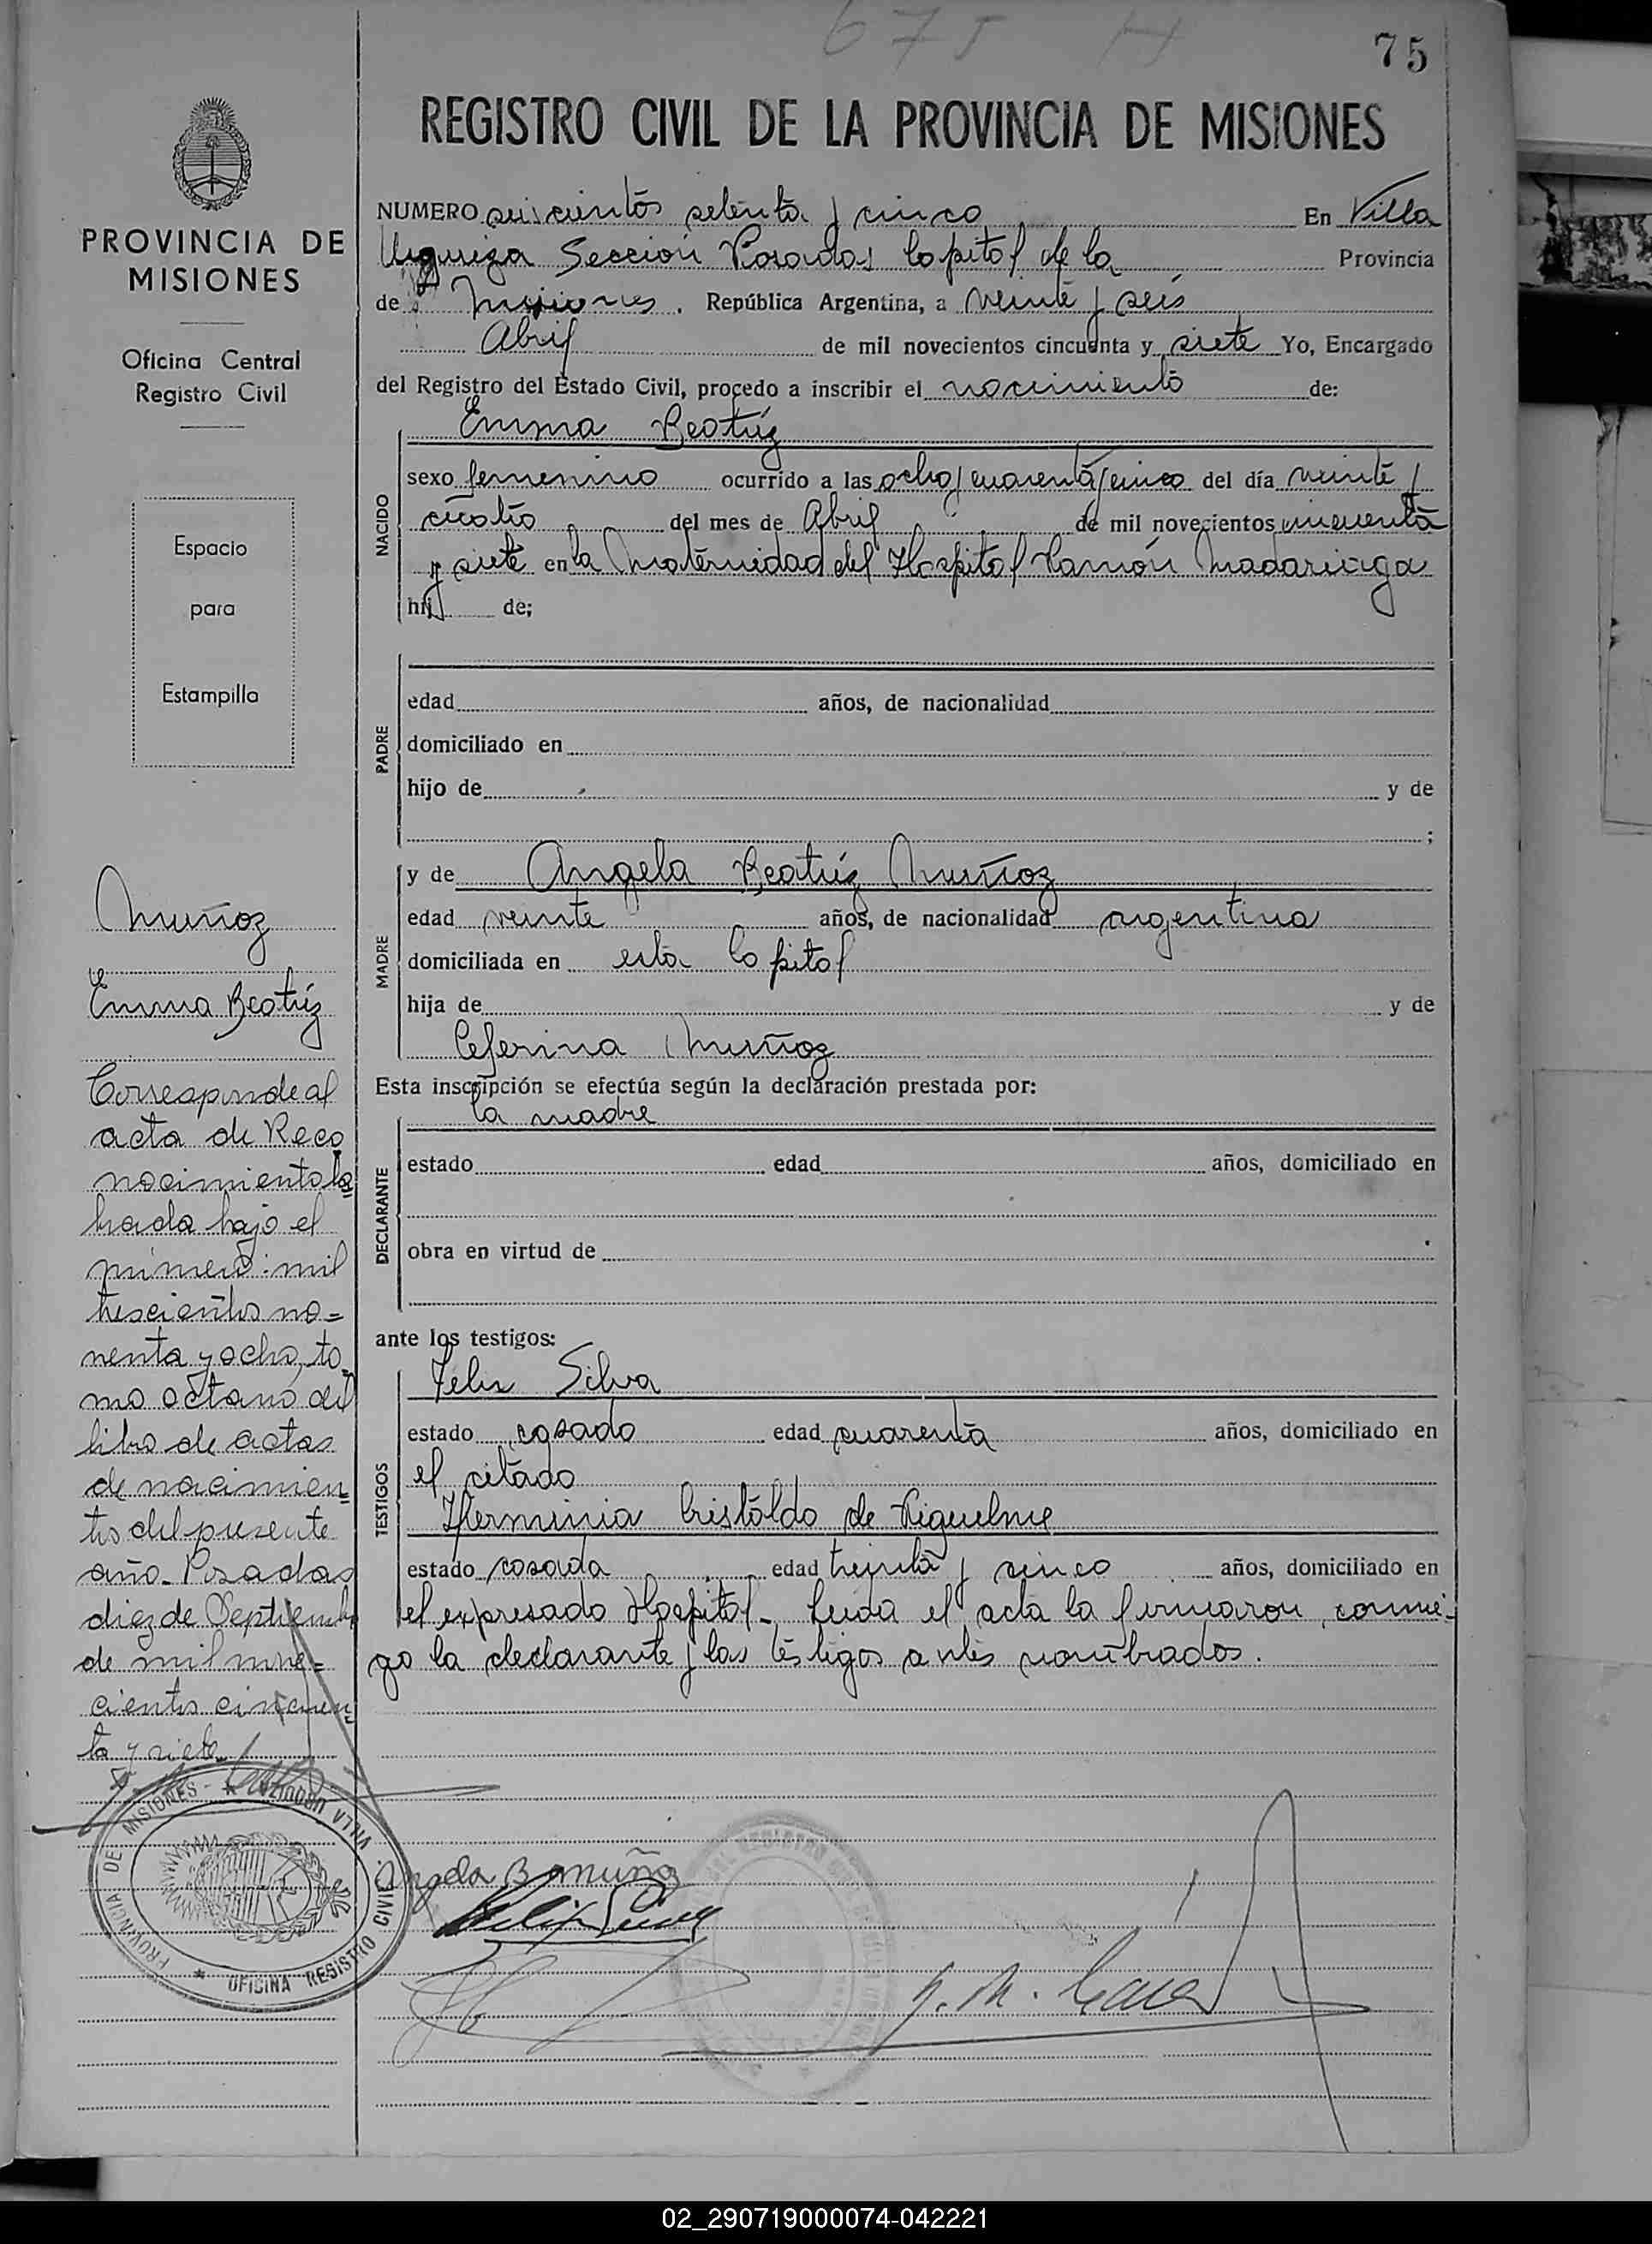 675 H
75
REGISTRO CIVIL DE LA PROVINCIA DE MISIONES
PROVINCIA DE
MISIONES
Oficina Central
Registro Civil
Espacio
para
Estampilla
Muñoz
Emma Beatríz
Corresponde al
acta de Reco
nocimiento la
brada bajo el
número: mil
trescientos no=
venta y ocho, to
mo octavo del
libro de actas
de nacimien=
tos del presente
año_ Posadas
diez de Septiembre
de mil nove=
cientos cincuen=
ta y siete
PROVINCIA DE MISIONES - VILLA URQUIZA
OFICINA REGISTRO CIVIL
NUMERO seiscientos setenta y cinco En Villa
Urquiza Sección Posadas Capital de la Provincia
de Misiones. República Argentina, a veinte y seis
Abril de mil novecientos cincuenta y siete Yo, Encargado
del Registro del Estado Civil, procedo a inscribir el nacimiento de:
NACIDO
Emma Beatríz
sexo femenino ocurrido a las ocho y cuarenta y cinco del día veinte y
cuatro del mes de Abril de mil novecientos cincuenta
y siete en la Maternidad del Hospital Ramón Madariaga
hij de;
PADRE
edad años, de nacionalidad
domiciliado en
hijo de y de
;
MADRE
y de Angela Beatríz Muñoz
edad veinte años, de nacionalidad argentina
domiciliada en esta Capital
hija de y de
Ceferina Muñoz
Esta inscripción se efectúa según la declaración prestada por:
DECLARANTE
la madre
estado edad años, domiciliado en
obra en virtud de
ante los testigos:
TESTIGOS
Felix Silva
estado casado edad cuarenta años, domiciliado en
el citado
Herminia Cristaldo de Riquelme
estado casada edad treinta y cinco años, domiciliado en
el expresado Hospital_ Leida el acta la firmaron conmi-
go la declarante y los testigos antes nombrados.
Angela B Muñoz
Felix Silva
02_290719000074-042221